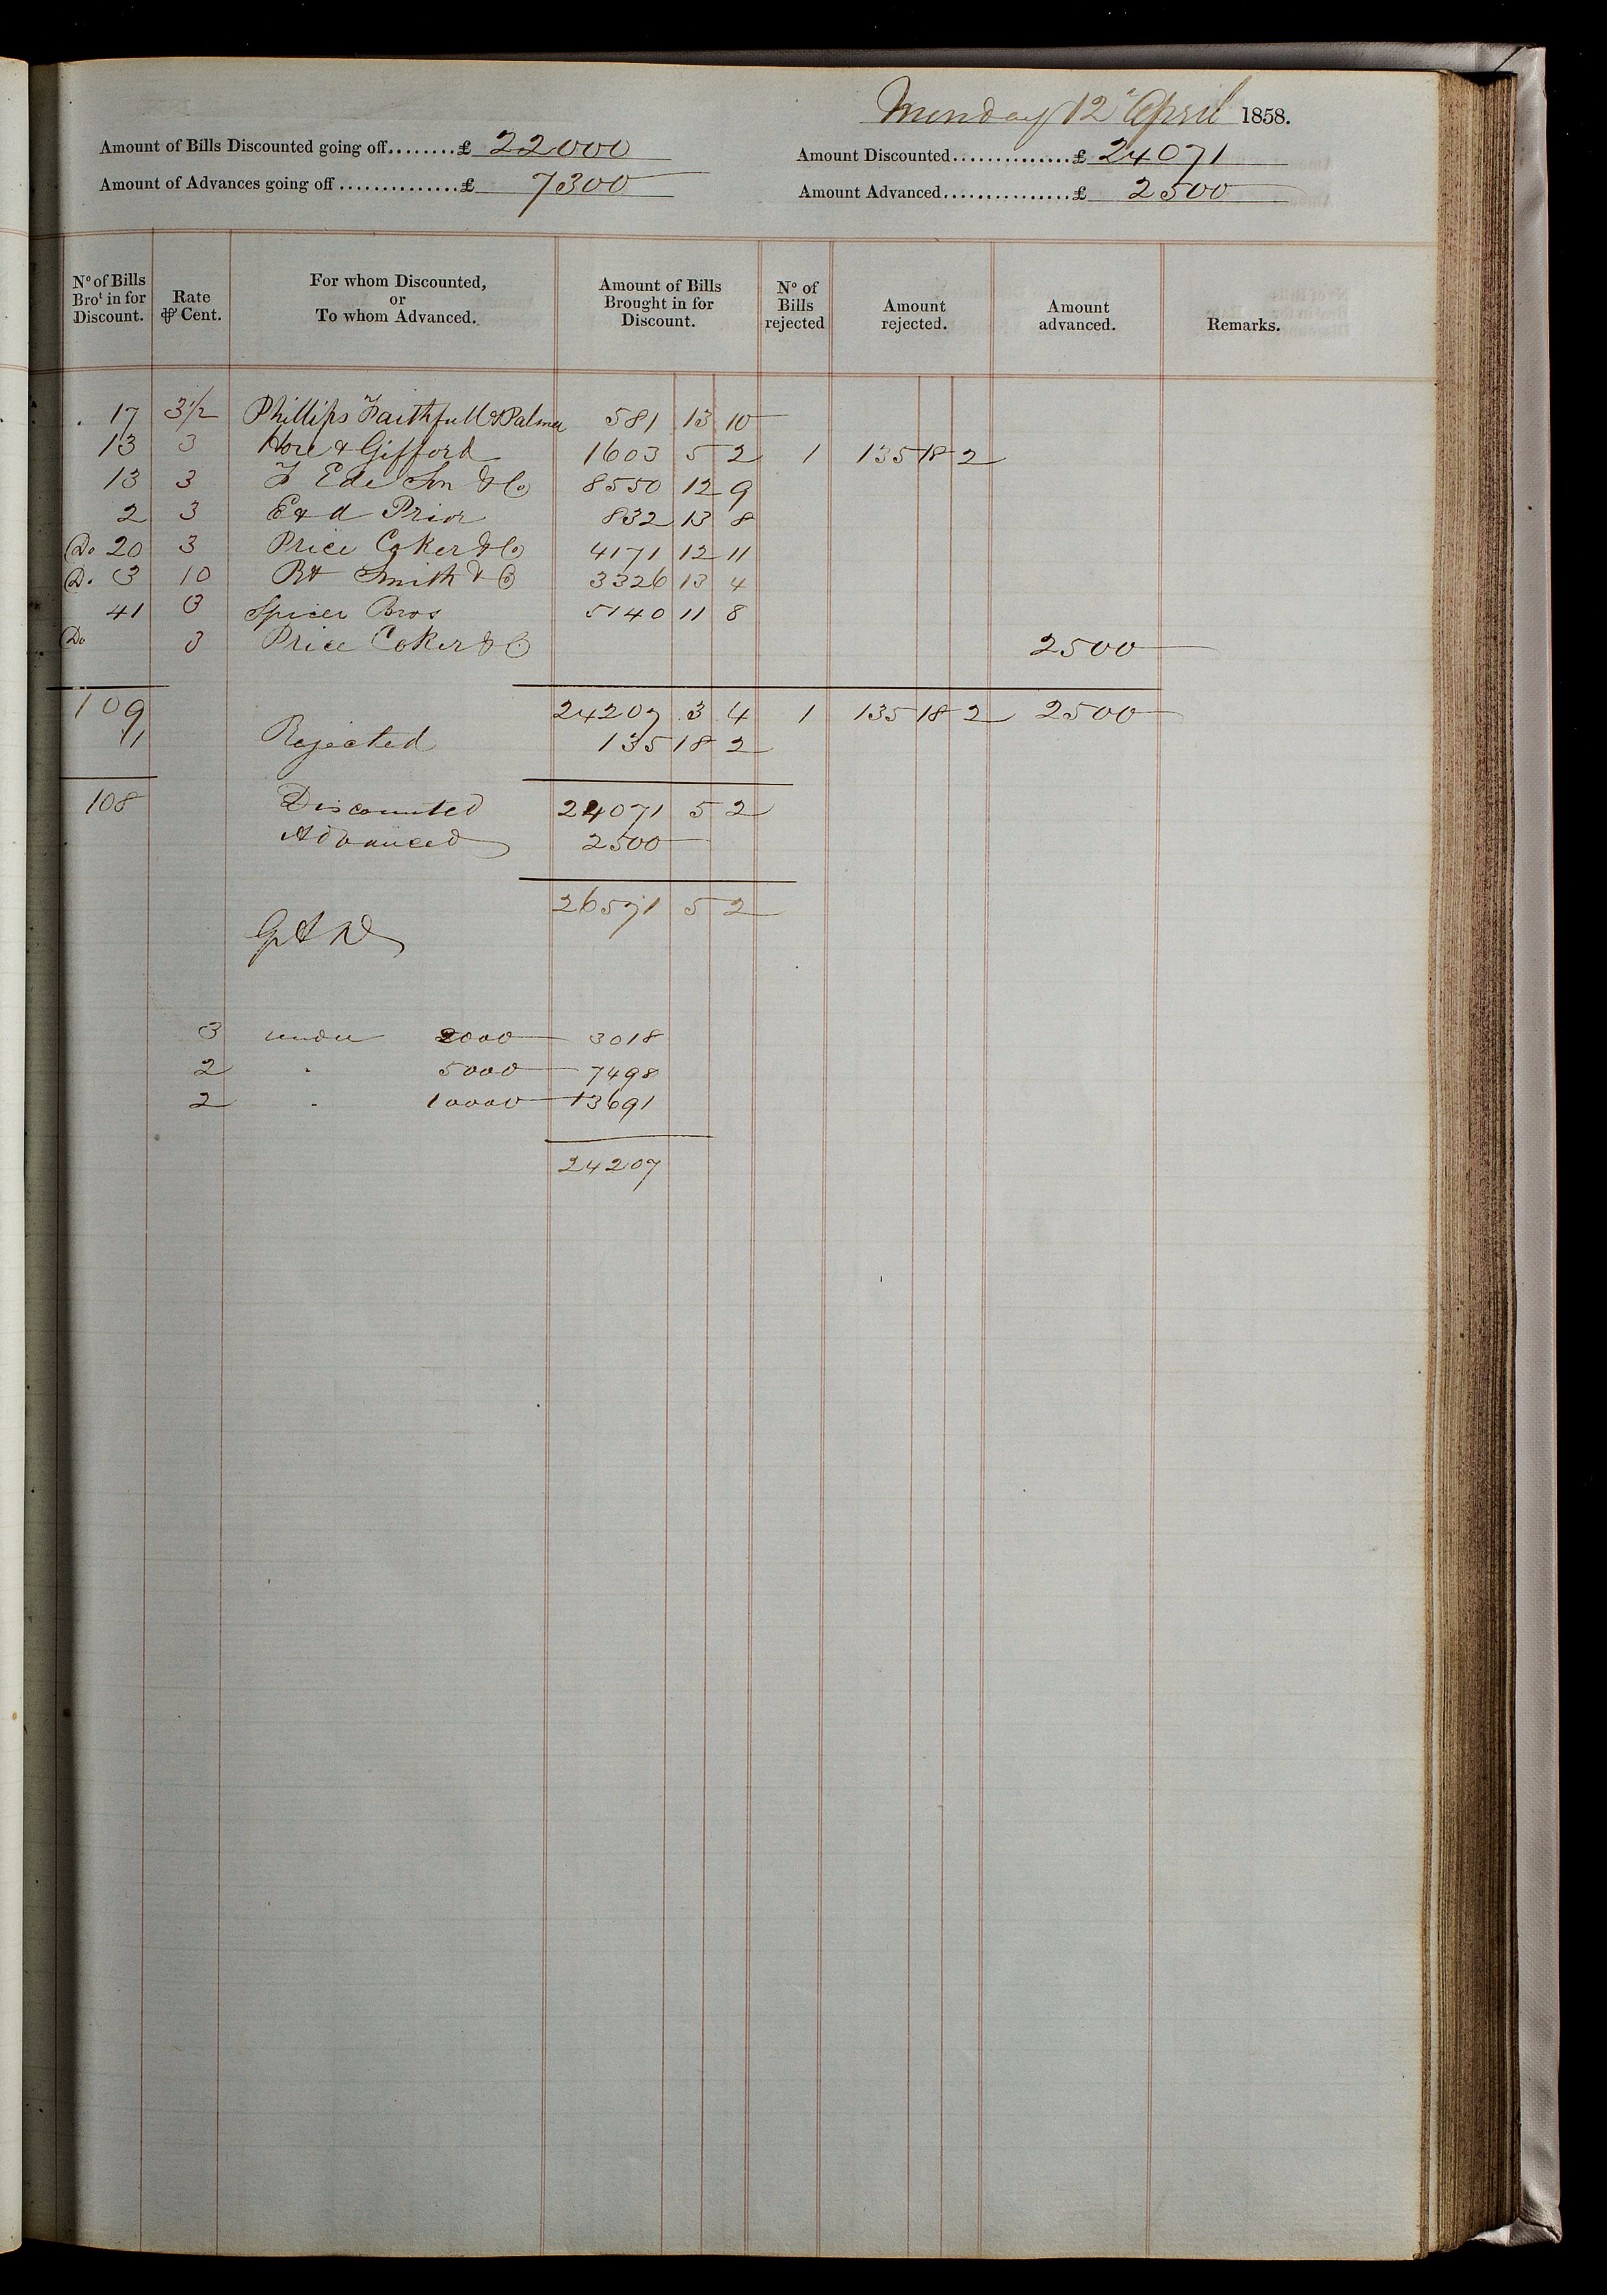 Monday 12 April 1858.
Amount of Bills Discounted going off........£ 22000
Amount Discounted..............£ 24071
Amount of Advances going off..............£ 7300
Amount Advanced...............£ 2500
No of Bills Brot in for Discount. Rate ⅌ Cent. For whom Discounted, or To whom Advanced. Amount of Bills Brought in for Discount. No of Bills rejected Amount rejected. Amount advanced. Remarks.
17 3½ Phillips Faithfull & Palmer 581 13 10
13 3 Hore & Gifford 1603 5 2 1 135 18 2
13 3 F Ede Son & Co 8550 12 9
2 3 E & A Prior 832 13 8
Do 20 3 Price Coker & Co 4171 12 11
Do 3 10 Smith & Co 3326 13 4
41 3 Spicer Bros 5140 11 8
Do 3 Price Coker & Co 2500
109 24207 3 4 1 135 18 2 2500
1 Rejected 135 18 2
108 Discounted 24071 5 2
Advanced 2500
26571 5 2
3 under 2000 3018
2 " 5000 7498
2 " 10000 13691
24207